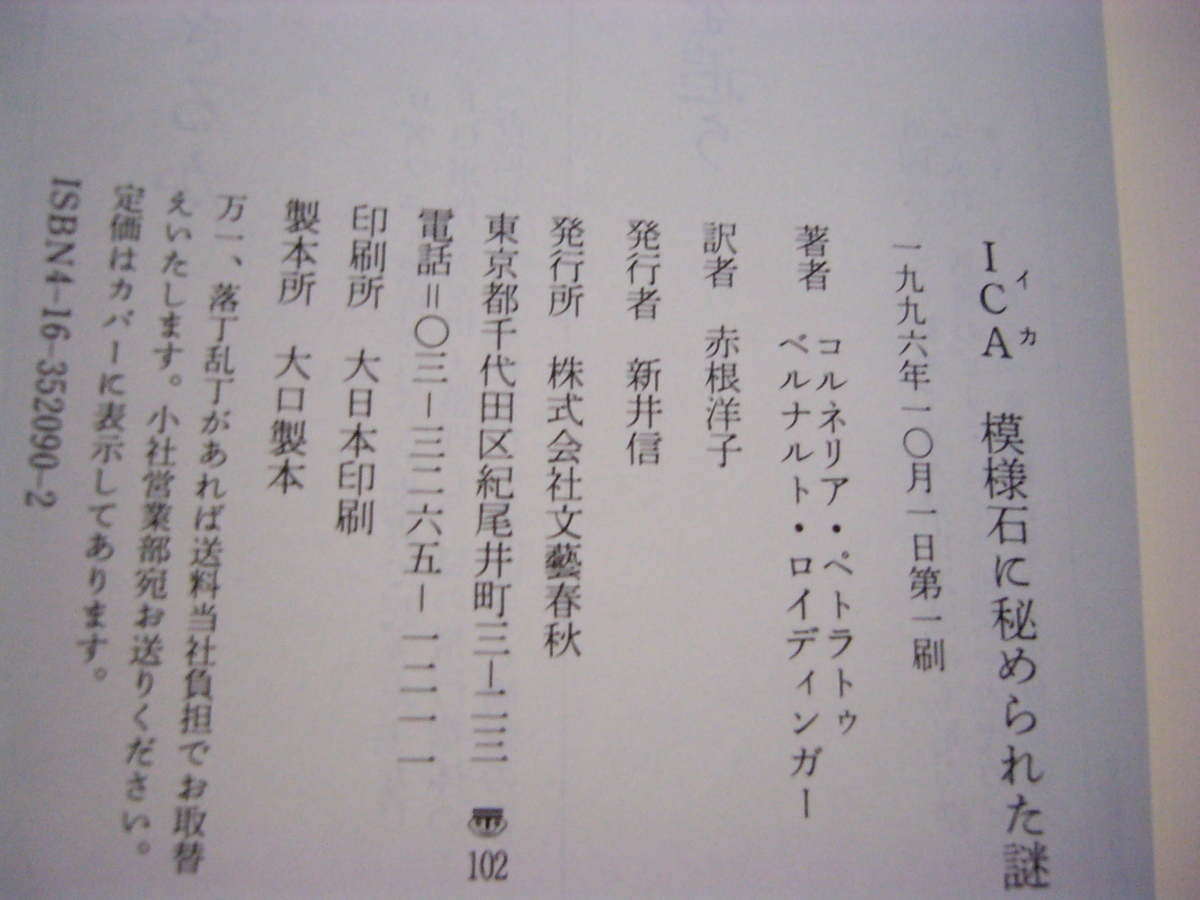 ICA 模様石に秘められた謎
イカ
一九九六年一〇月一日第一刷
著者 コルネリア・ペトラトゥ
ベルナルト・ロイディンガー
訳者 赤根洋子
発行者 新井信
発行所 株式会社文藝春秋
東京都千代田区紀尾井町三—二三 102
電話＝〇三—三二六五—一二一一
印刷所 大日本印刷
製本所 大口製本
万一、落丁乱丁があれば送料当社負担でお取替
えいたします。小社営業部宛お送りください。
定価はカバーに表示してあります。
ISBN4-16-352090-2